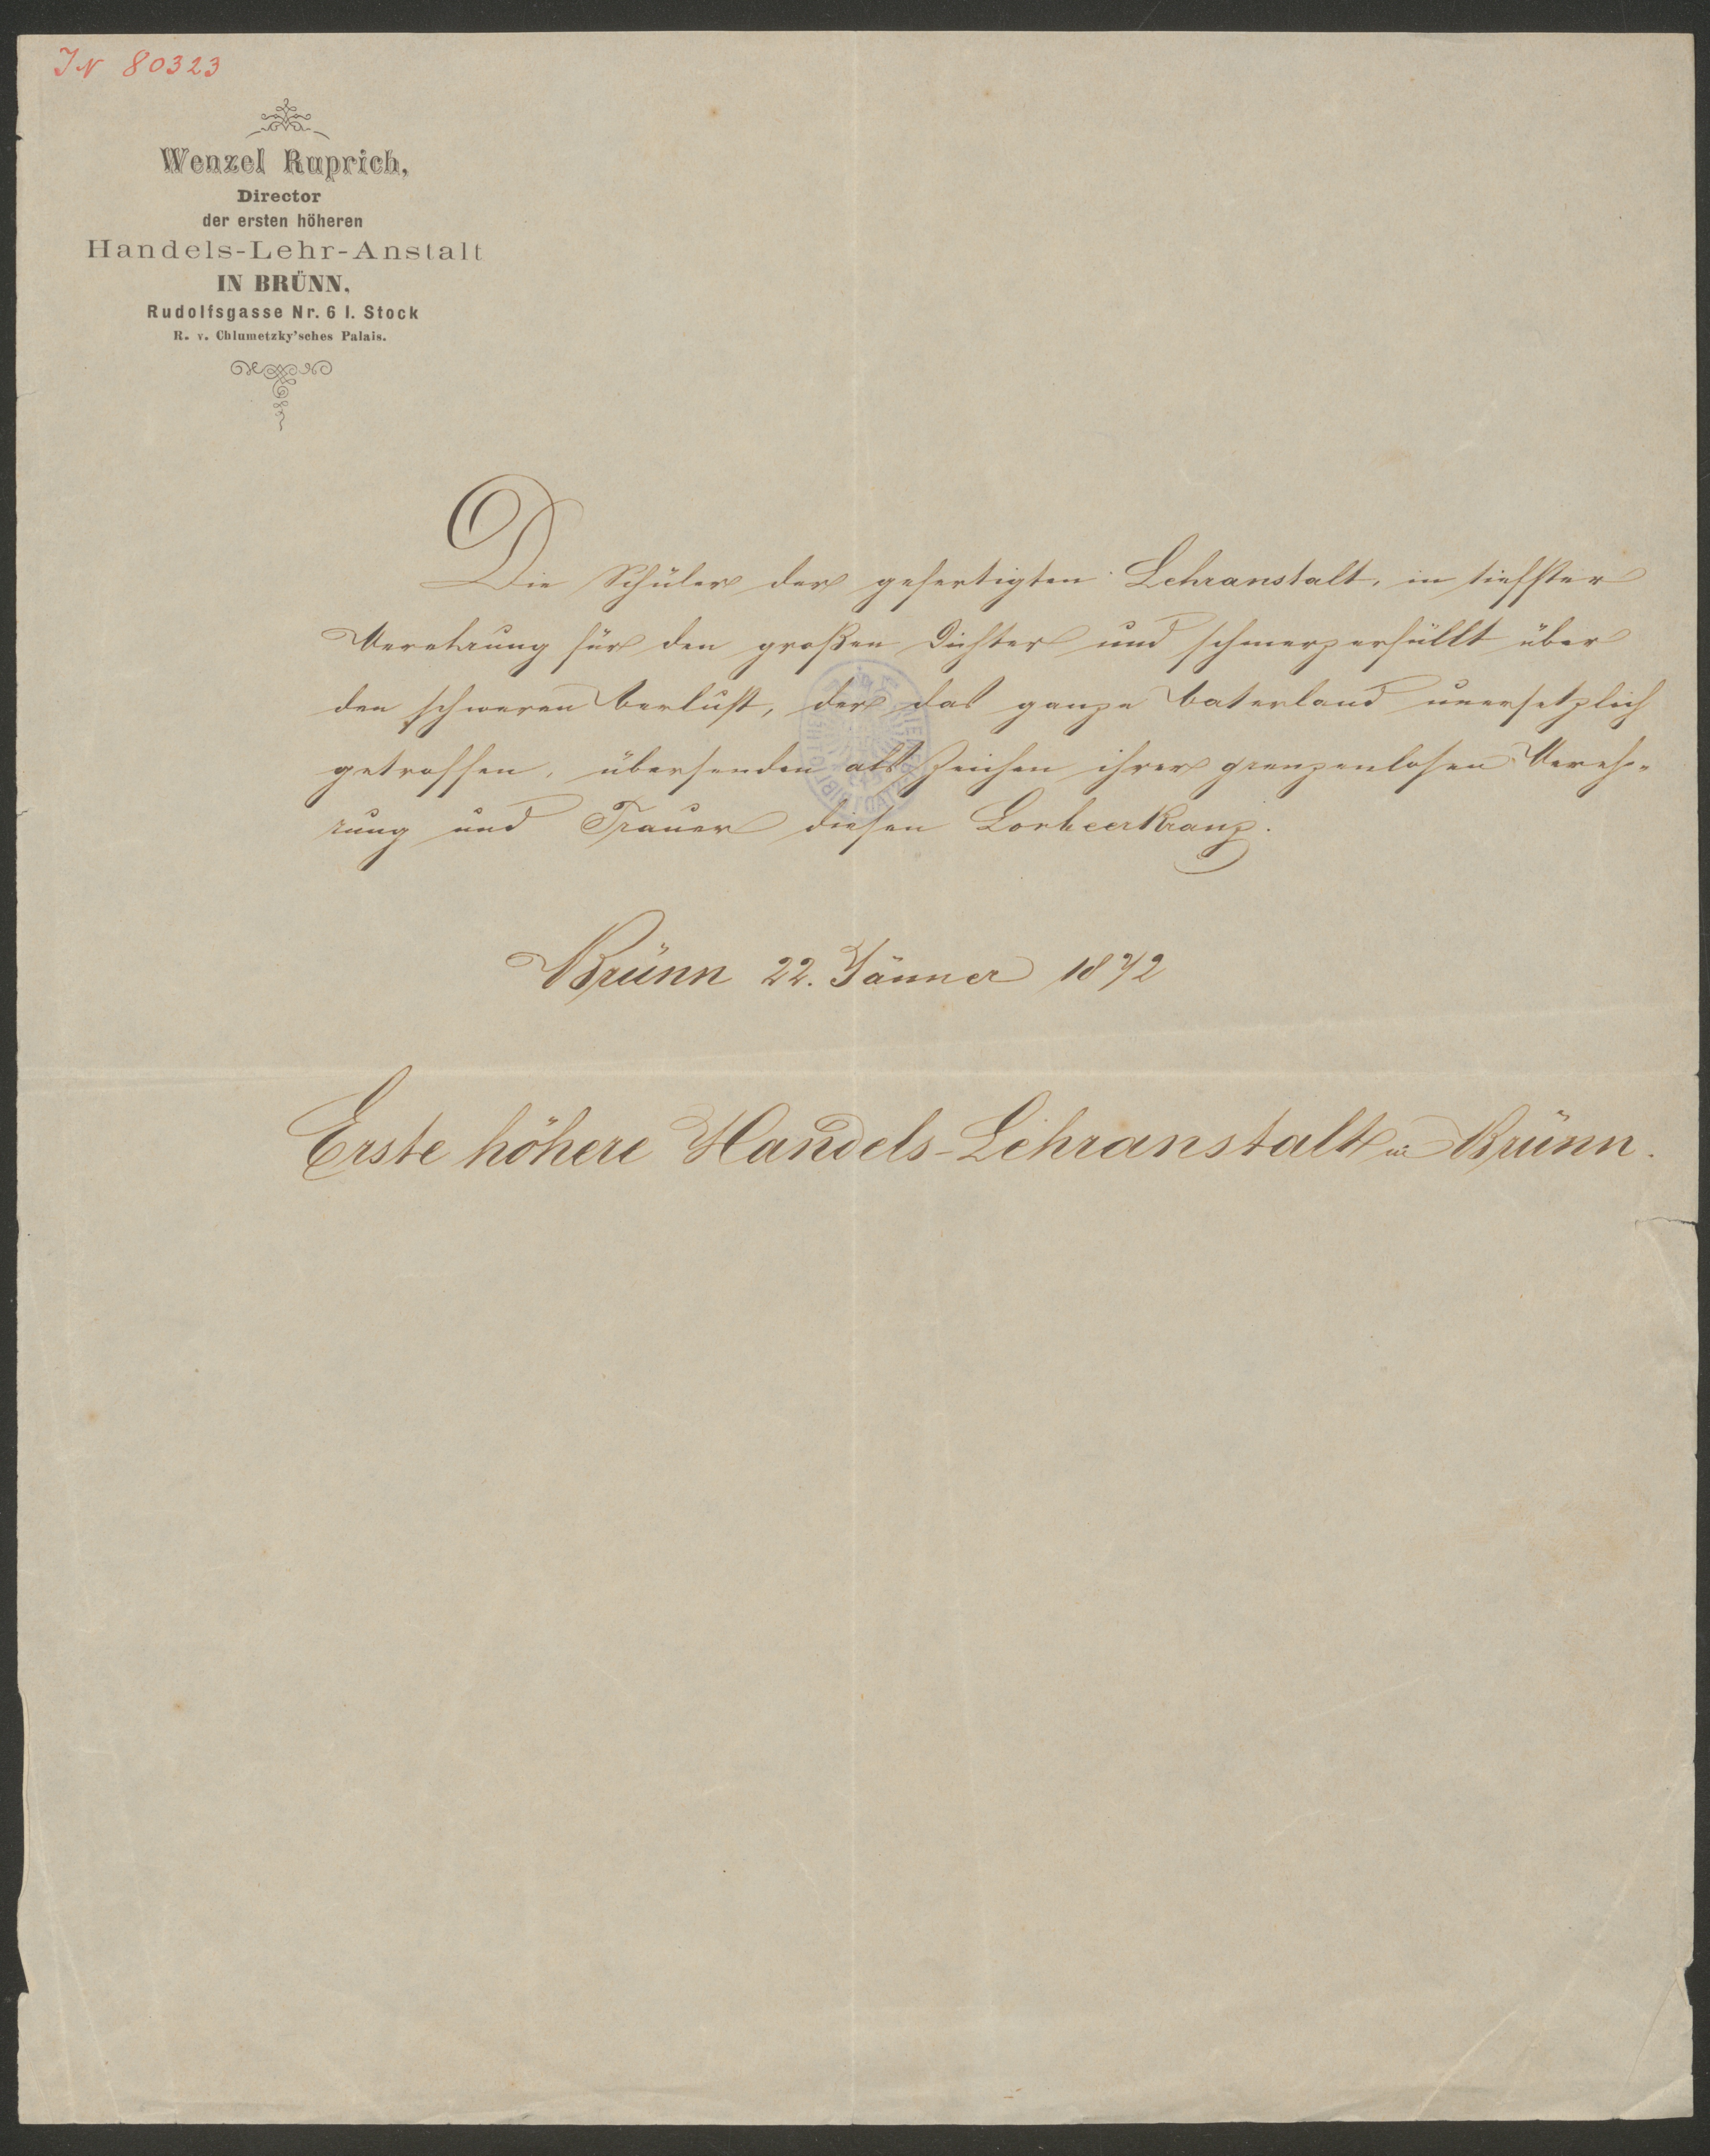 IN 80323
Wenzel Ruprich,
Director
der ersten höheren
Handels-Lehr-Anstalt
IN BRÜNN,
Rudolfsgasse Nr. 6 I. Stock
R. v. Chlumetzky'sches Palais.
Die Schüler der gefertigten Lehranstalt, in tiefster
Verehrung für den großen Dichter und schmerzerfüllt über
den schweren Verlust, der das ganze Vaterland unersetzlich
getroffen, übersenden als Zeichen ihrer grenzenlosen Vereh-
rung und Trauer diesen Lorbeerkranz.
Brünn 22. Jänner 1872
Erste höhere Handels-Lehranstalt in Brünn.